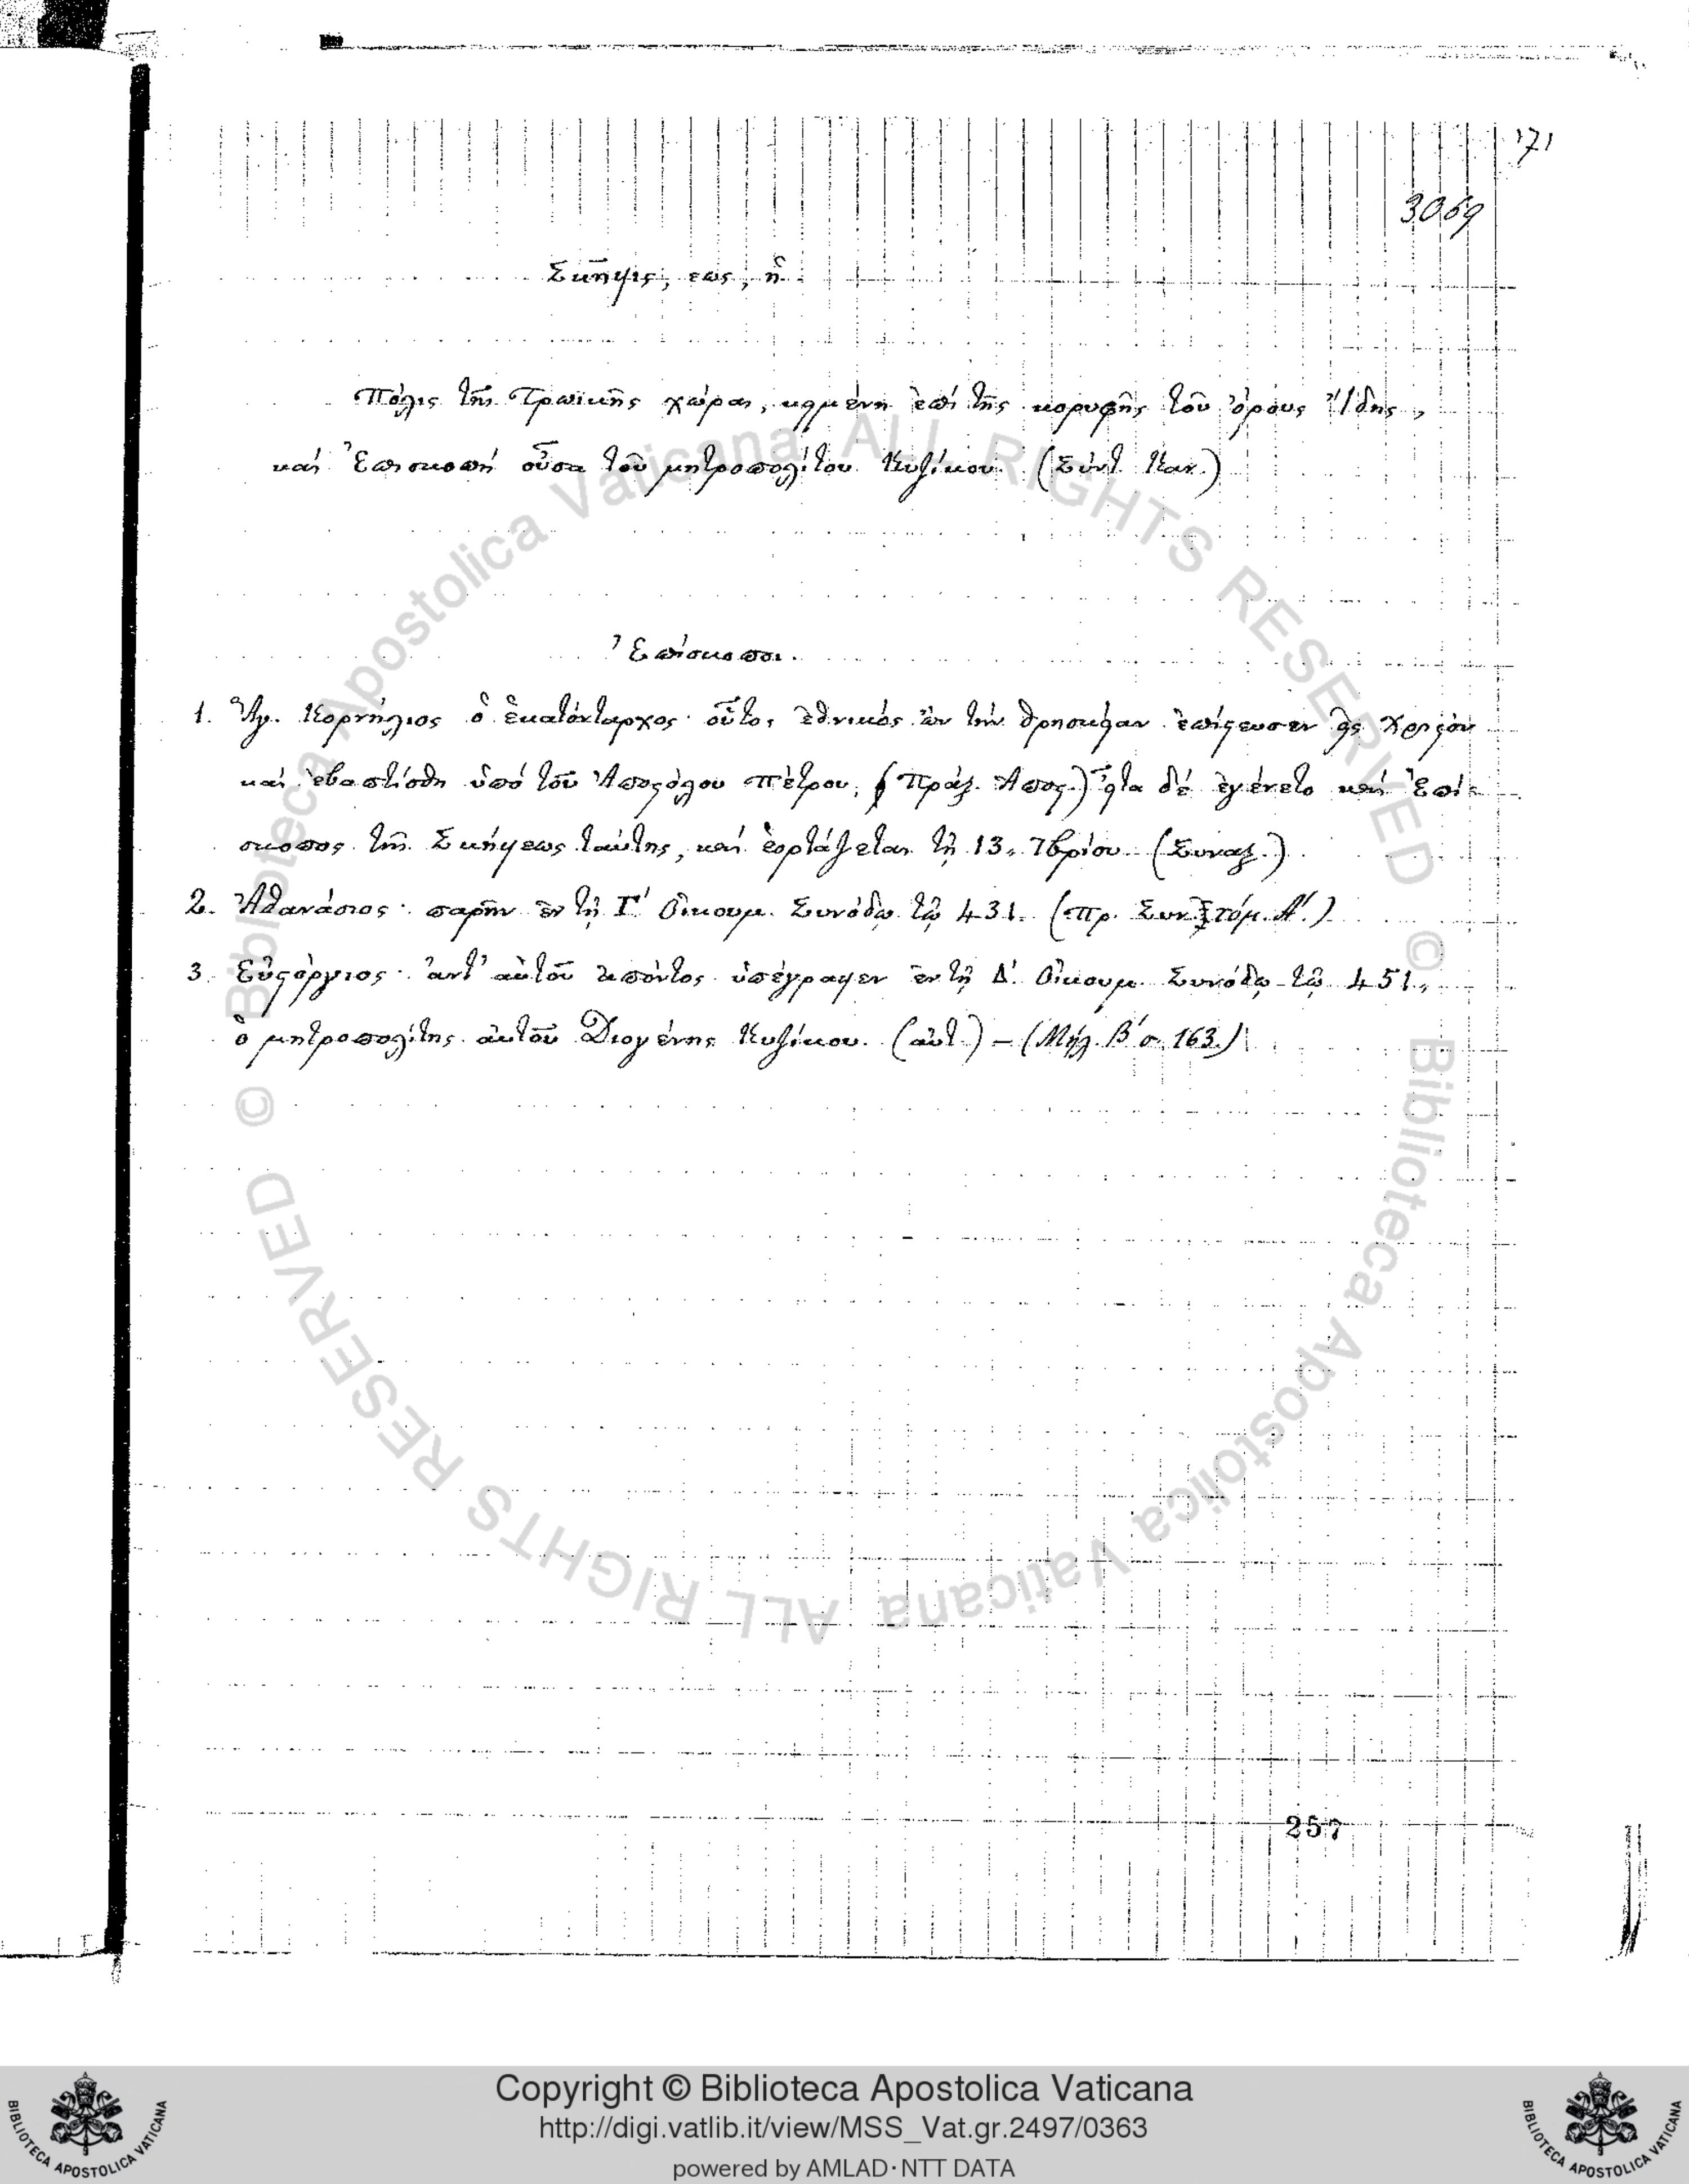 171
3069
Σκῆψις, εως, ἡ
Πόλις τῆς Τρωϊκῆς χώρας, κειμένη ἐπὶ τῆς κορυφῆς τοῦ ὄρους Ἴδης,
καὶ Ἐπισκοπὴ οὖσα τοῦ μητροπολίτου Κυζίκου. (Σύντ. Καν.)
Ἐπίσκοποι.
1. Ἅγ. Κορνήλιος ὁ ἑκατόνταρχος· οὗτος ἐθνικὸς ὢν τὴν θρησκείαν ἐπίστευσεν εἰς Χριστὸν
καὶ ἐβαπτίσθη ὑπὸ τοῦ Ἀποστόλου Πέτρου, (Πράξ. Αποστ.) εἶτα δὲ ἐγένετο καὶ Ἐπί-
σκοπος τῆς Σκήψεως ταύτης, καὶ ἑορτάζεται τῇ 13. 7βρίου. (Συναξ.)
2. Ἀθανάσιος· παρῆν ἐν τῇ Γ΄ Οἰκουμ. Συνόδῳ τῷ 431. (Πρ. Συν. τόμ. Α΄.)
3. Εὐστόργιος· ἀντ' αὐτοῦ ἀπόντος ὑπέγραψεν ἐν τῇ Δ΄. Οἰκουμ. Συνόδῳ τῷ 451.,
ὁ μητροπολίτης αὐτοῦ Διογένης Κυζίκου. (αὐτ.) – (Μήλ. Β΄ σ. 163.)
257
© Biblioteca Apostolica Vaticana ALL RIGHTS RESERVED
© Biblioteca Apostolica Vaticana ALL RIGHTS RESERVED
Copyright © Biblioteca Apostolica Vaticana
http://digi.vatlib.it/view/MSS_Vat.gr.2497/0363
powered by AMLAD·NTT DATA
BIBLIOTECA APOSTOLICA VATICANA
BIBLIOTECA APOSTOLICA VATICANA